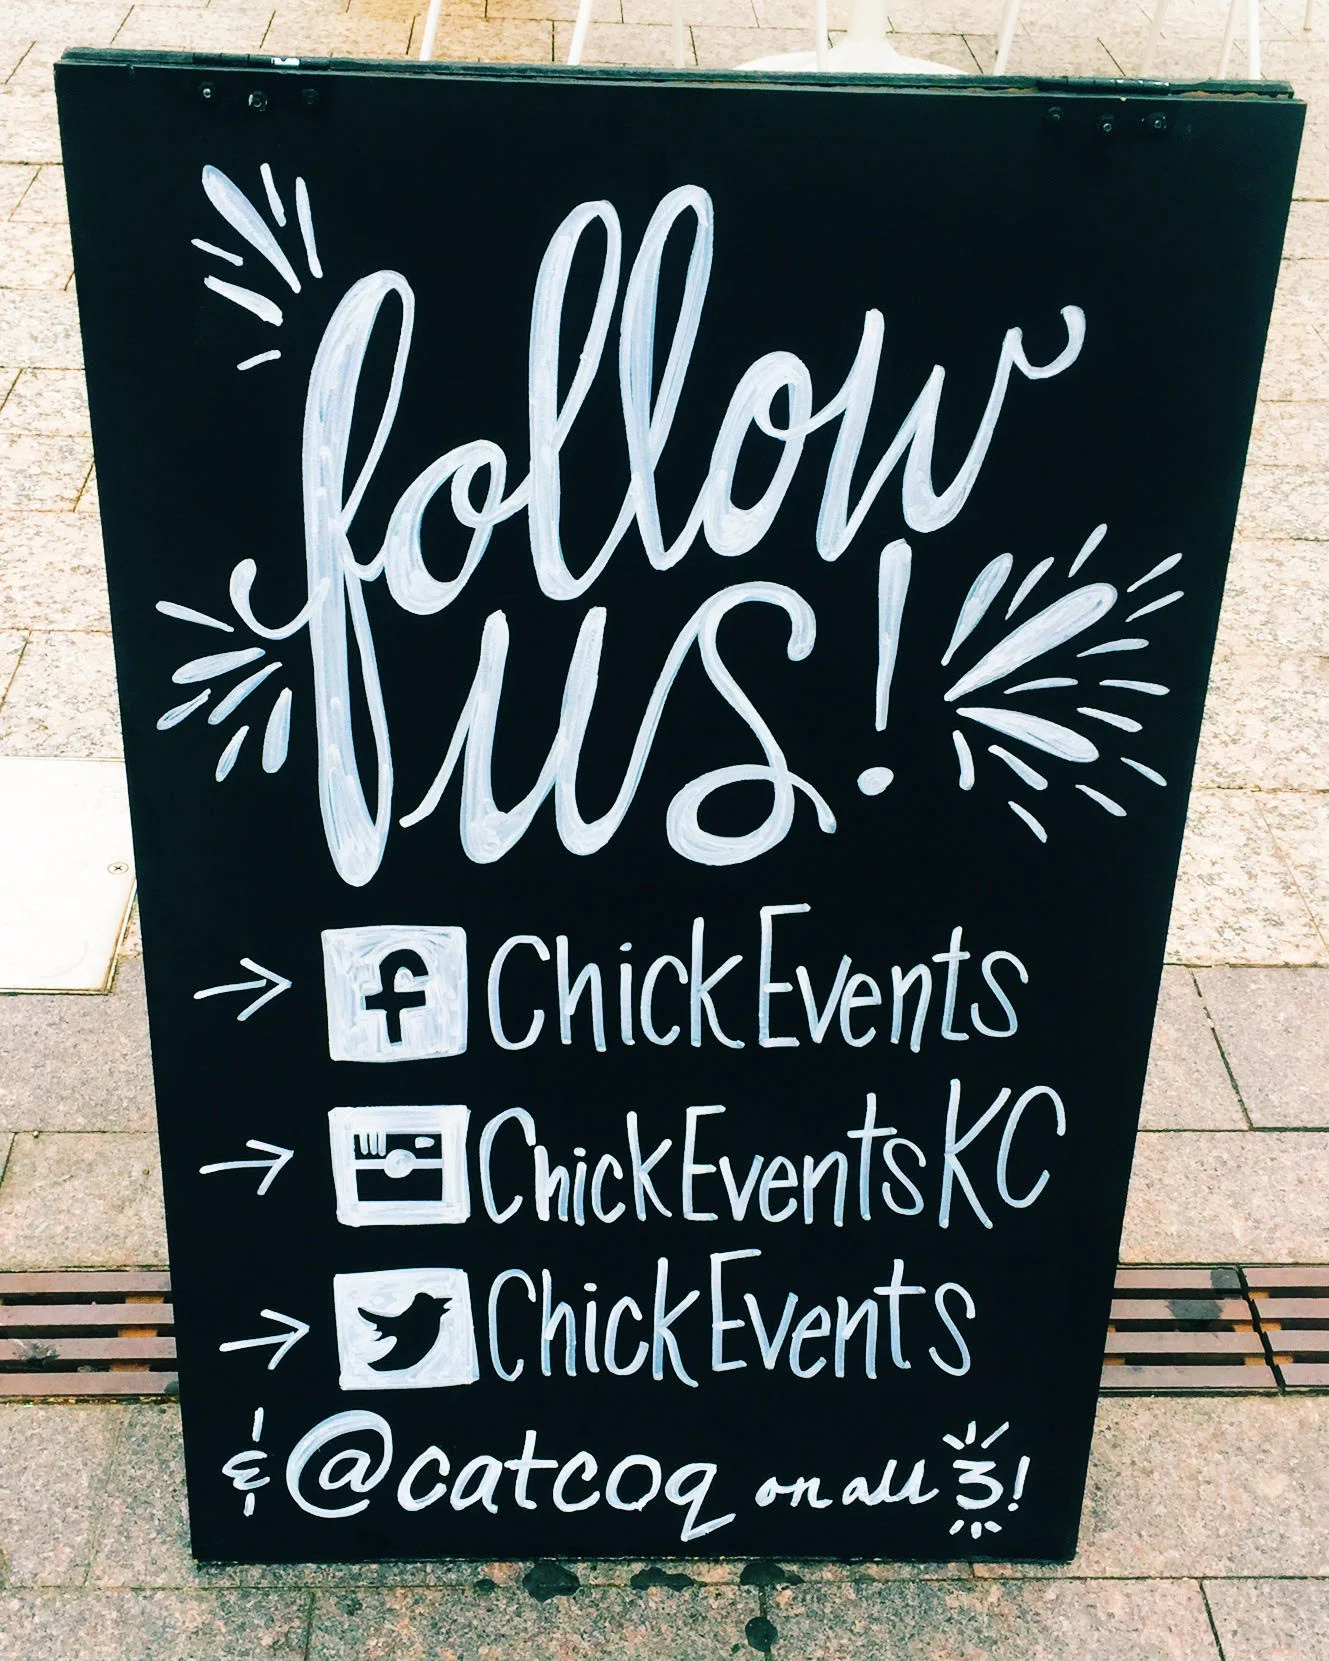 follow
us!
→ f ChickEvents
→ ChickEventsKC
→ ChickEvents
& @catcoq on all 3!